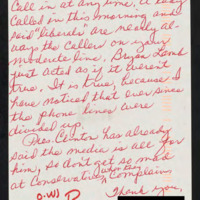 Call in at any time. A lady
called in this morning and
said "liberals" are nearly al-
ways the callers on your
moderate line. Bryan Lamb
just acted as if it weren't
true. It is true, because I
have noticed that ever since
the phone lines were
divided up.
Pres. Clinton has already
said the media is all for
him, so don't get so mad
at Conservatives who
complain.
Thank you,